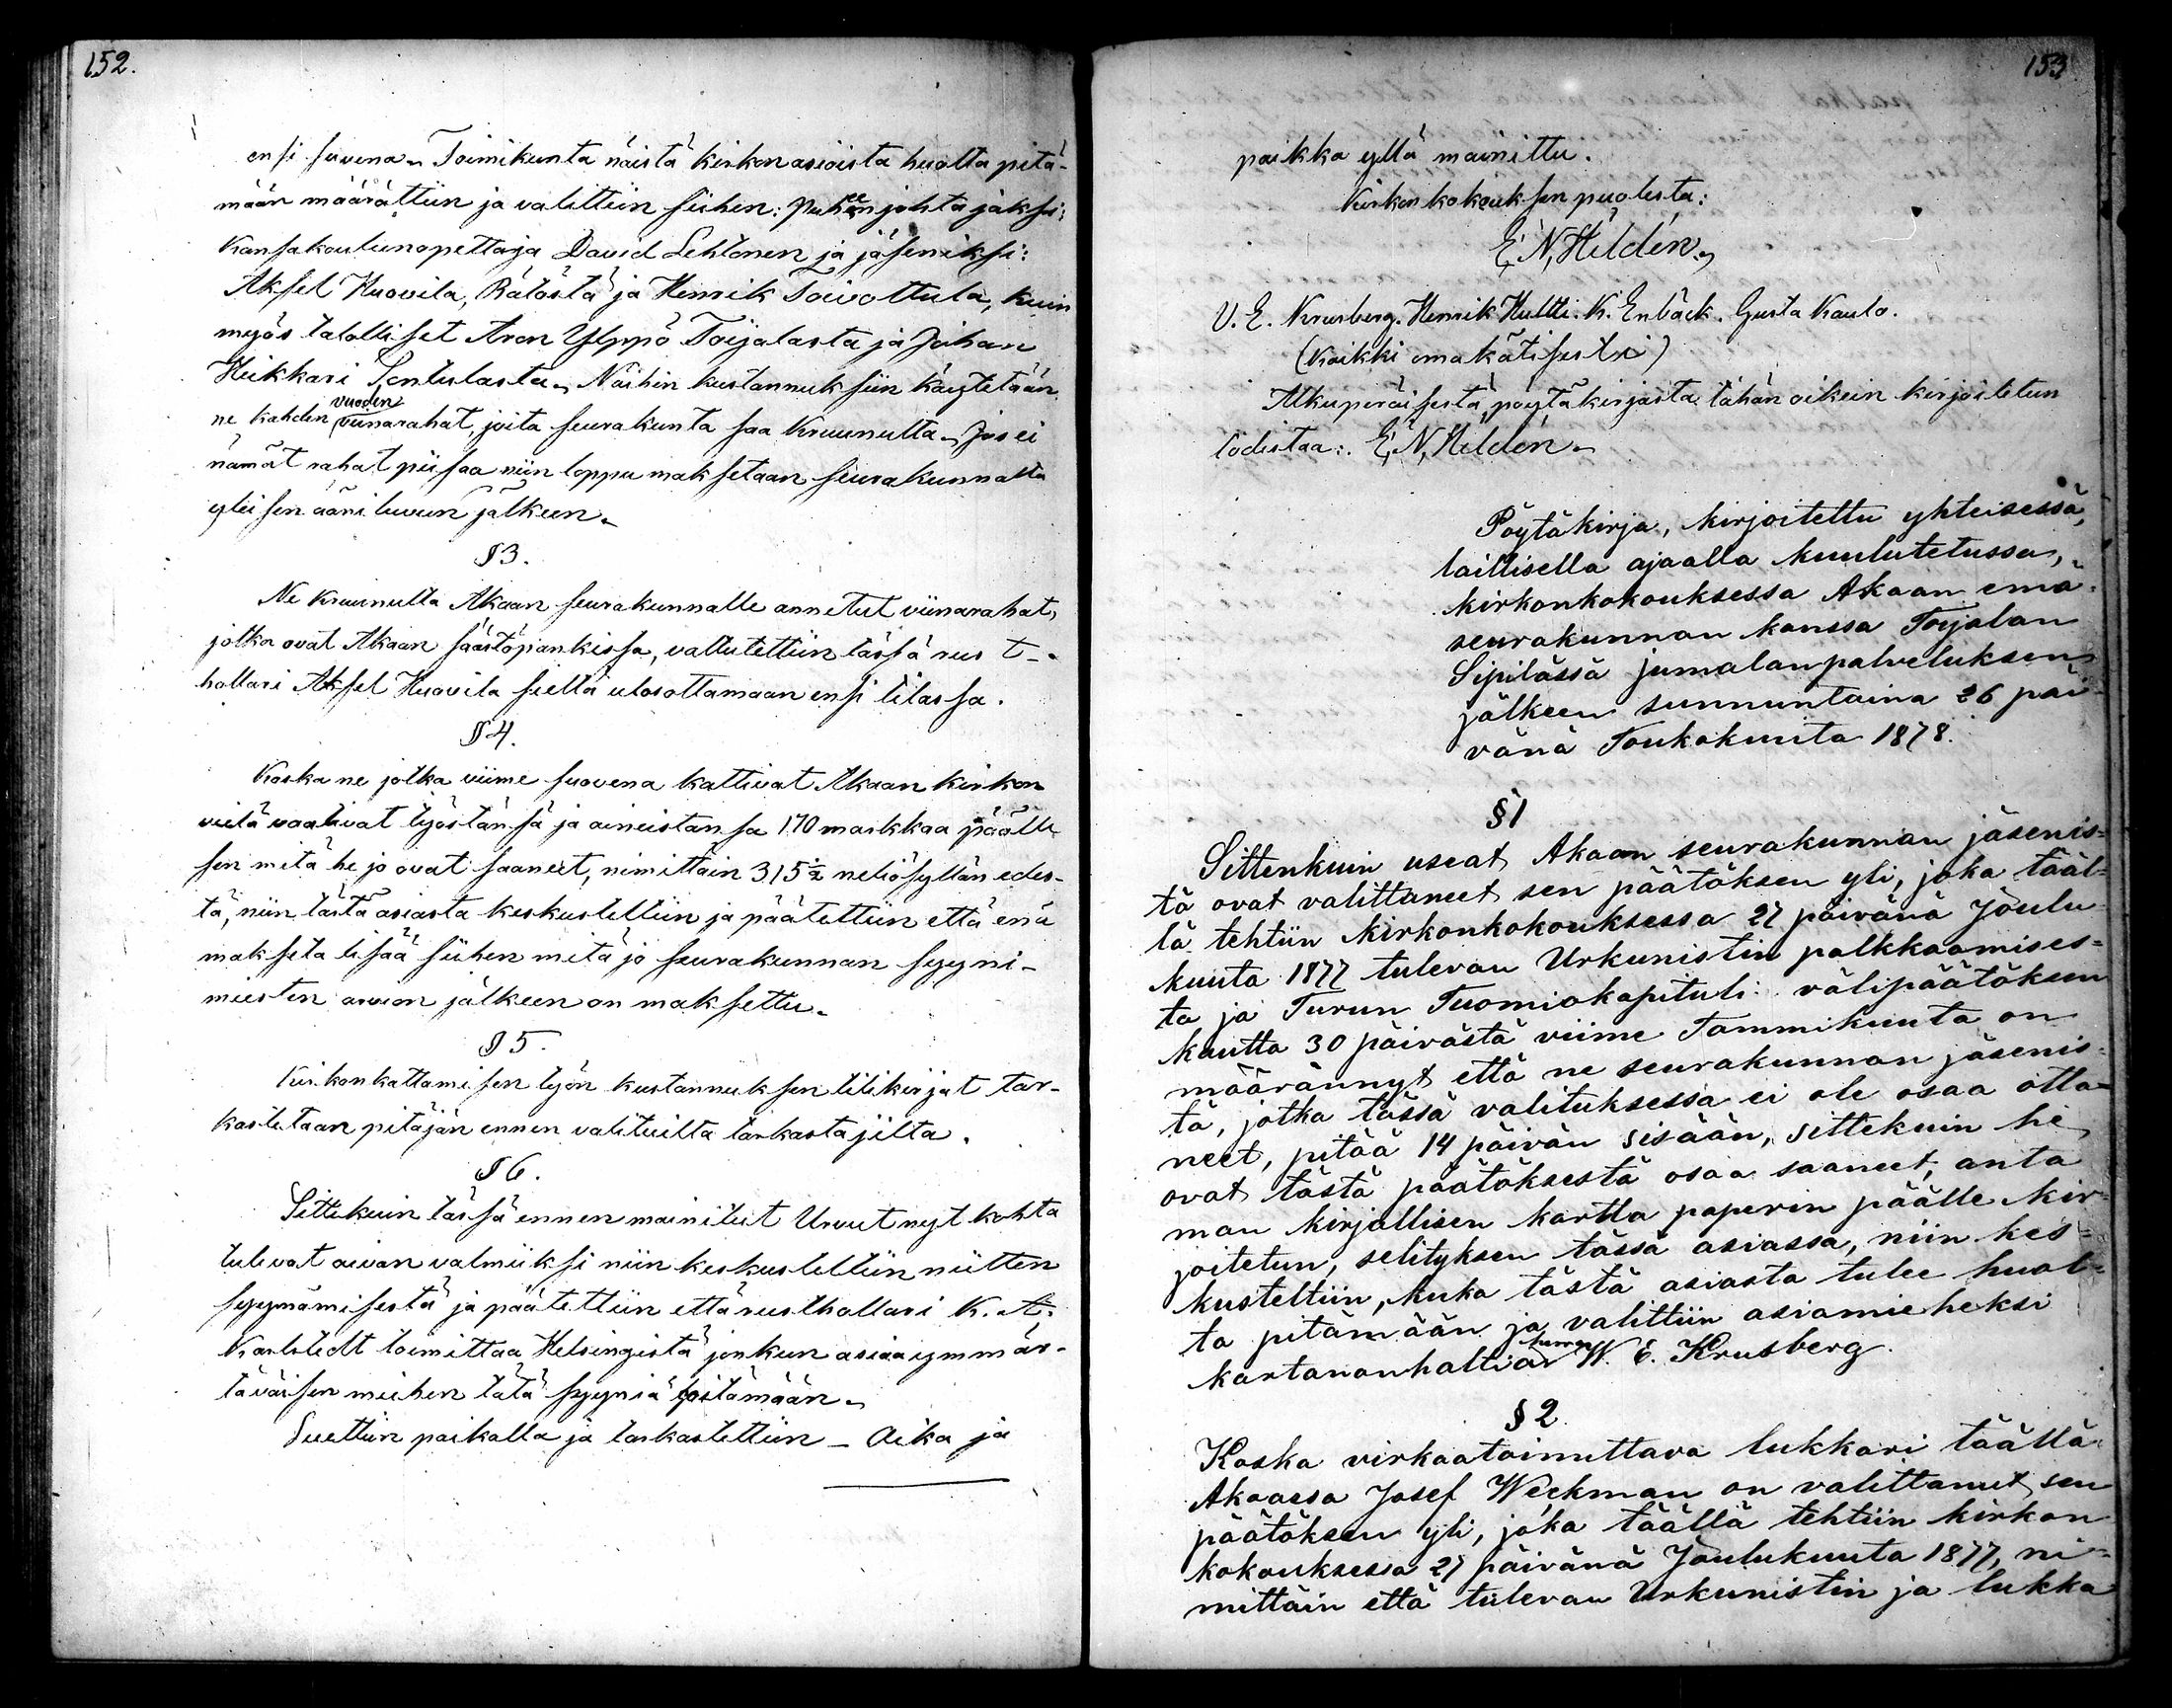 152.
ensi suvena. Toimikunta näistä kirkon asioista huolta pitä-
mään määrättiin ja valittiin siihen: puheenjohtajaksi:
Kansakoulunopettaja David Lehtonen ja jäseniksi:
Aksel Huovila, Rätöstä ja Henrik Toivottula, kuin
myös talolliset Aron YLppö Toijalasta ja Johan
Heikkari Sontulasta. Näihin kustannuksiin käytetään
ne kahden vuoden viinarahat, joita seurakunta saa kruunulta. Jos ei
nämät rahat piisaa niin loppu maksetaan seurakunnalta
yleisen ääniluvun jälkeen.
§3.
Ne kruunulta Akaan seurakunnalle annetut viinarahat,
jotka ovat Akaan säästöpankissa, valtutettiin tässä rus t-
hollari Aksel Huovila sieltä ulosottamaan ensi tilassa.
§4.
Koska ne jotka viime suovena kattivat Akaan kirkon
vielä vaativat työstänsä ja aineistansa 170 markkaa päälle
sen mitä he jo ovat saaneet, nimittäin 315½ neliösyllän edes-
tä, niin tästä asiasta keskusteltiin ja päätettiin että enä
makseta lisää siihen mitä jo seurakunnan syyni-
miesten arvion jälkeen on maksettu.
§5.
Kirkonkattamisen työn kustannuksen tilikirjat tar-
kastetaan pitäjän ennen valituilta tarkastajilta.
§6.
Sittekuin tässä ennen mainitut Urvut nyt kohta
tulevat aivan valmiiksi niin keskusteltiin niitten
syynämisestä ja päätettiin että rusthollari K. A.
Karlstedt toimittaa Helsingistä jonkun asiaaymmär-
täväisen miehen tätä syyniä pitämään.
Luettiin paikalla ja tarkastettiin - Aika ja
153
paikka yllä mainittu.
Kirkonkokouksen puolesta:
E. N. Heldén.
V. E. Krusberg. Henrik Hultti. K. Enbäck. Gusta Kaulo.
(Kaikki omakätisesti)
Alkuperäisestä pöytäkirjasta tähän oikein kirjoitetun
todistaa: E. N. Heldén.
Pöytäkirja, kirjoitettu yhteisessä,
laillisella ajaalla kuulutetussa,
kirkonkokouksessa Akaan emä-
seurakunnan kanssa Toijalan
Sipilässä jumalanpalveluksen
jälkeen sunnuntaina 26 päi-
vänä Toukokuuta 1878.
§1
Sittenkuin useat Akaan seurakunnan jäsenis=
tä ovat valittaneet sen päätöksen yli, joka tääl=
lä tehtiin kirkonkokouksessa 27 päivänä Joulu
kuuta 1877 tulevan Urkunistin palkkaamises=
ta ja Turun Tuomiokapituli välipäätöksen
kautta 30 päivästä viime Tammikuuta on
määrännyt että ne seurakunnan jäsenis=
tä, jotka tässä valituksessa ei ole osaa otta=
neet, pitää 14 päivän sisään, sittekuin he
ovat tästä päätöksestä osaa saaneet, anta
man kirjallisen kartta paperin päälle kir=
joitetun, selityksen tässä asiassa, niin kes=
kusteltiin, kuka tästä asiasta tulee huol=
ta pitämään ja valittiin asiamieheksi
kartanonhaltiar herra W. E. Krusberg.
§2
Koska virkaatoimittava lukkari täällä
Akaassa Josef Weckman on valittanut sen
päätöksen yli, joka täällä tehtiin kirkon
kokouksessa 27 päivänä Joulukuuta 1877, ni=
mittäin että tulevan Urkunistin ja lukka